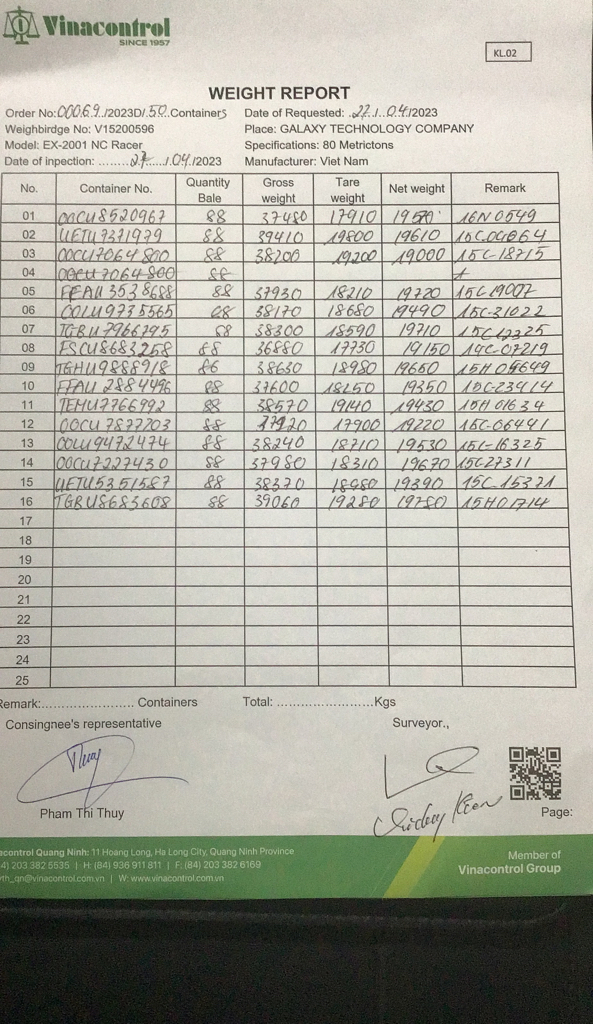 Vinacontrol
SINCE 1957
KL.02
WEIGHT REPORT
Order No: 00069/2023D/ 50 Containers Date of Requested: 27/ 04/2023
Weighbirdge No: V15200596 Place: GALAXY TECHNOLOGY COMPANY
Model: EX-2001 NC Racer Specifications: 80 Metrictons
Date of inpection: ........27..../04/2023 Manufacturer: Viet Nam
No. Container No. Quantity Bale Gross weight Tare weight Net weight Remark
01 OOCU8520967 88 37480 17910 19570 16N0549
02 UETU7371979 88 39410 19800 19610
03 OOCU7064800 88 38200 19200 19000 15C-18715
04 OOCU7064800 88
05 FFAU3538688 88 37930 18210 19720 15C19007
06 COLU9735565 88 38170 18680 19490 15C-31022
07 TGBU7966795 88 38300 18590 19710 15C12325
08 FSCU8683258 88 36880 17730 19150 14C-07219
09 TGHU9888918 86 38630 18980 19650 15H05649
10 FFAU2884496 88 37600 18250 19350 15C-23414
11 TEMU7766992 88 38570 19140 19430 15H01634
12 OOCU7877203 88 17900 19220 15C-06441
13 COLU9472474 88 38240 18710 19530 15C-16325
14 OOCU7227430 88 37980 18310 19670 15C27311
15 UETU5351587 88 38370 18980 19390 15C-15371
16 TGBU8683608 88 39060 19280 19780 15H01714
17
18
19
20
21
22
23
24
25
Remark:....................... Containers Total: ........................Kgs
Consingnee's representative Surveyor.,
Thuy
Pham Thi Thuy
Page:
econtrol Quang Ninh: 11 Hoang Long, Ha Long City, Quang Ninh Province
4) 203 382 5535 | H: (84) 936 911 811 | F: (84) 203 382 6169
th_qn@vinacontrol.com.vn | W: www.vinacontrol.com.vn
Member of
Vinacontrol Group